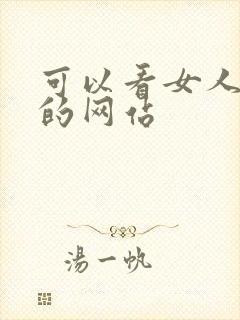 可以看女人
的网佔
湯一帆